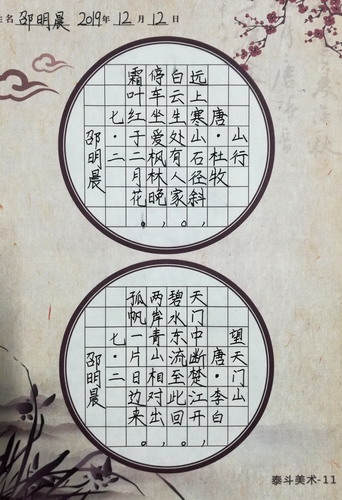 姓名 邵明晨 2019年 12月 12日
山行
唐·杜牧
远上寒山石径斜,
白云生处有人家。
停车坐爱枫林晚,
霜叶红于二月花。
七·二
邵明晨
望天门山
唐·李白
天门中断楚江开,
碧水东流至此回。
两岸青山相对出,
孤帆一片日边来。
七·二
邵明晨
泰斗美术-11